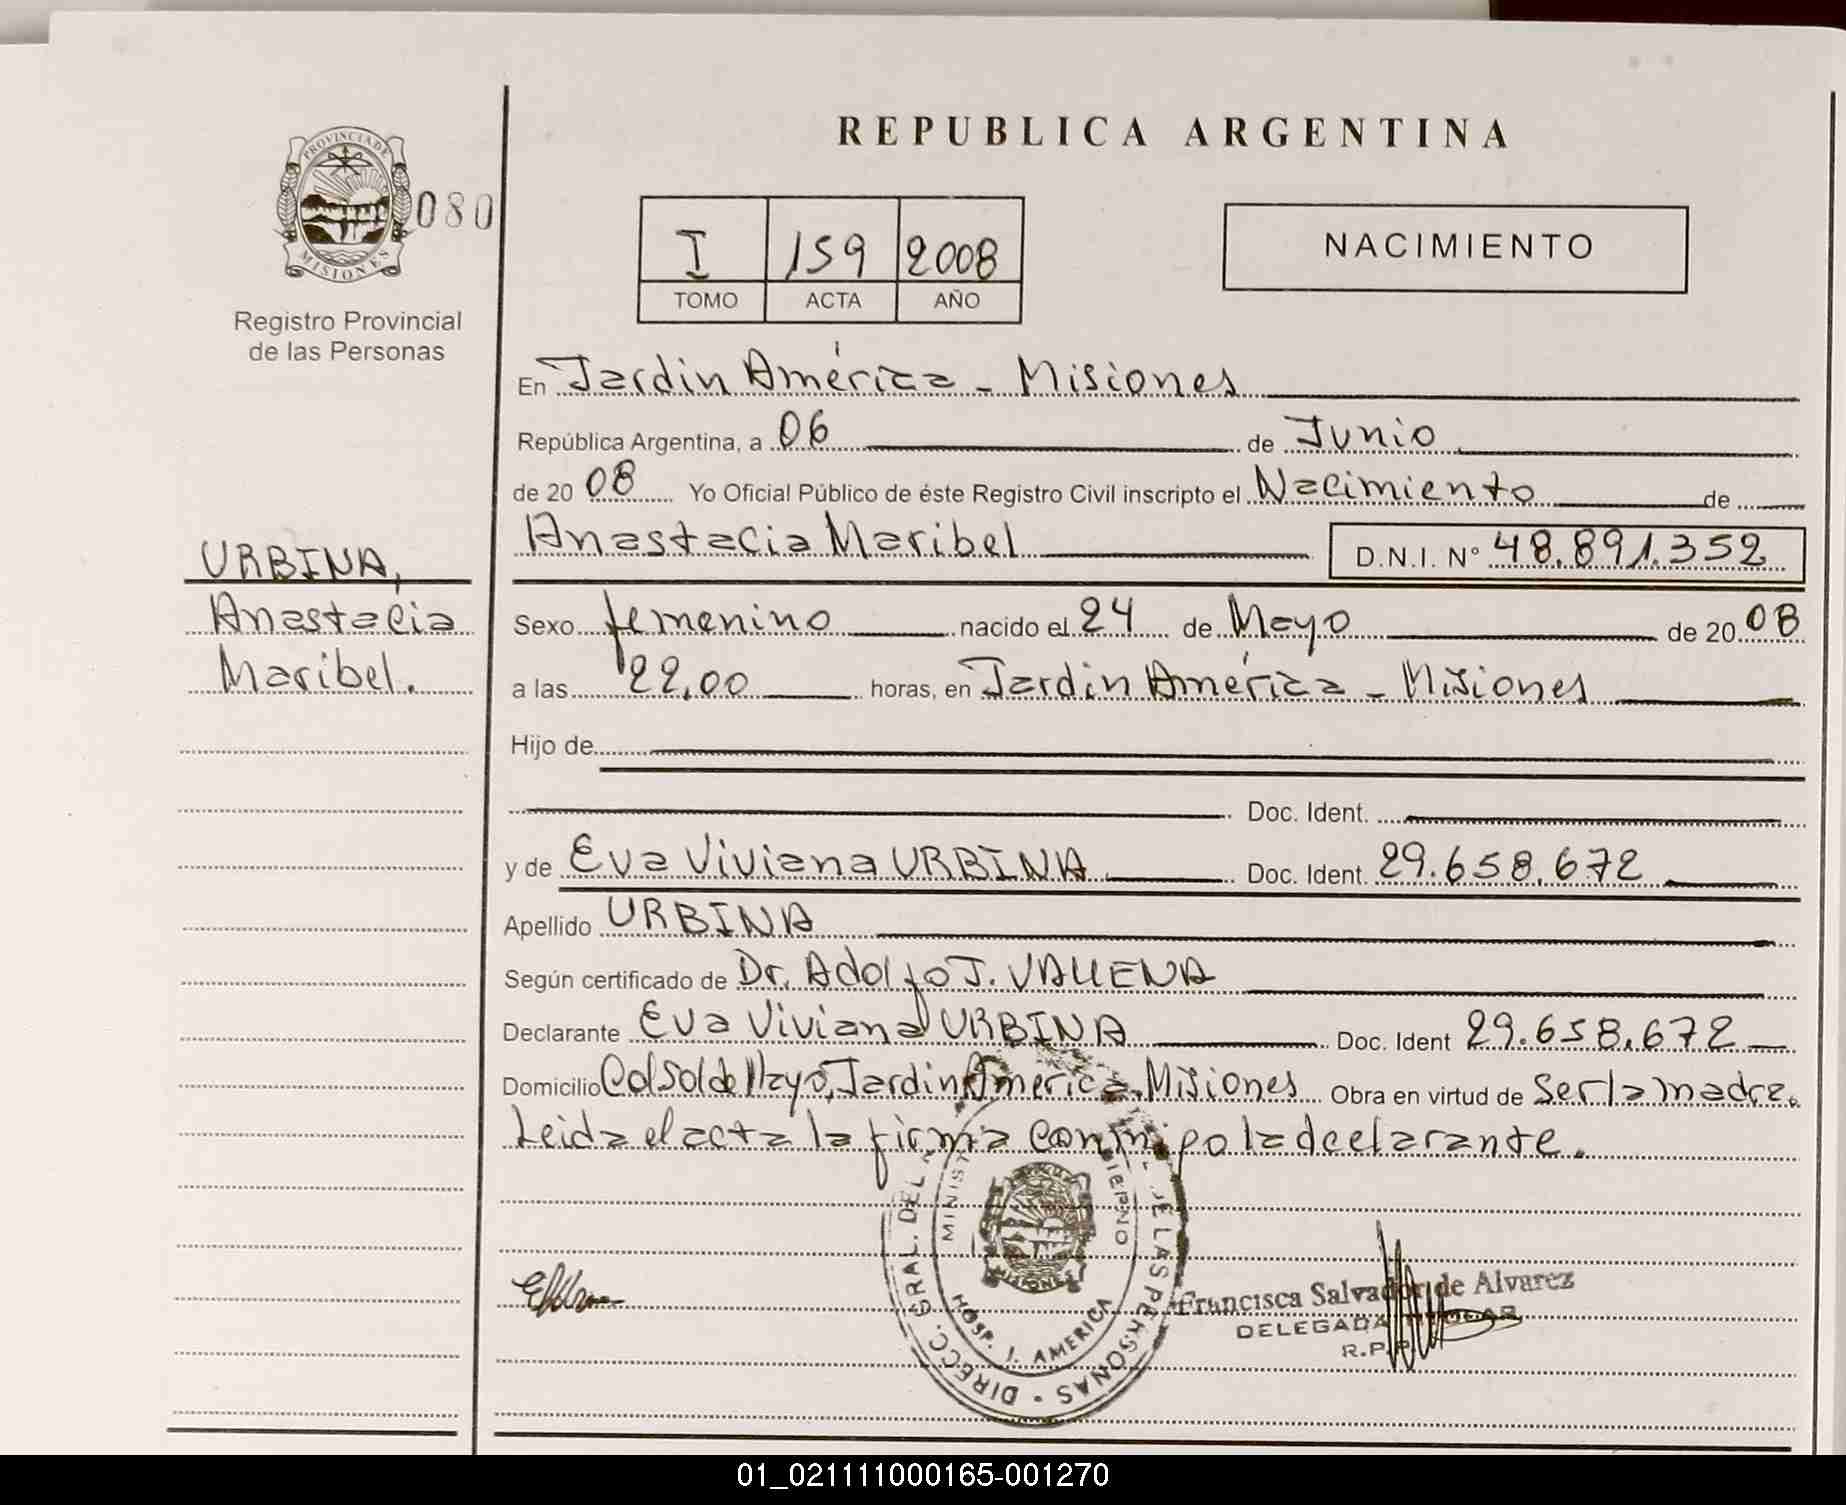 REPUBLICA ARGENTINA
PROVINCIA DE
MISIONES
080
Registro Provincial
de las Personas
I 159 2008
TOMO ACTA AÑO
NACIMIENTO
En Jardin América - Misiones
República Argentina, a 06 de Junio
de 20 08 Yo Oficial Público de éste Registro Civil inscripto el Nacimiento de
Anastacia Maribel D.N.I. N° 48.891.352
URBINA,
Anastacia
Maribel.
Sexo femenino nacido el 24 de Mayo de 20 08
a las 22,00 horas, en Jardin América - Misiones
Hijo de
Doc. Ident.
y de Eva Viviana URBINA Doc. Ident. 29.658.672
Apellido URBINA
Según certificado de Dr. Adolfo J. VALLENA
Declarante Eva Viviana URBINA Doc. Ident 29.658.672
Domicilio Col Sol de Mayo, Jardin América. Misiones Obra en virtud de Ser la madre.
Leida el acta la firma conmigo la declarante.
DIRECC. GRAL. DEL DE LAS PERSONAS
HOSP. J. AMERICA
MISIONES
Francisca Salvador de Alvarez
DELEGADA TITULAR
R.P.P.
01_021111000165-001270